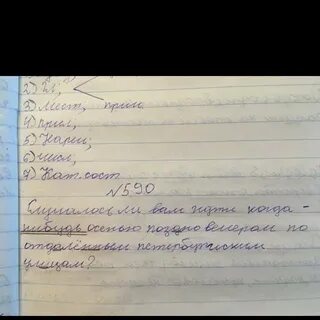 2) Гл;
3) Мест, прил.
4) Прил,
5) Нареч;
6) Числ,
7) Кат. сост
№590
Случалось ли вам идти когда -
нибудь осенью поздно вечером по
отдалённым петербургским
улицам?